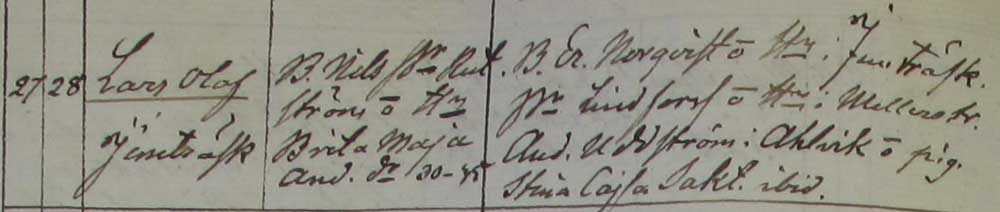 27 28 Lars Olof
Jämträsk
B. Nils Pr Rut
ström ō Hu
Brita Maja
And. dr 30-35
B. Er. Norqvist ō Hu i Jämträsk.
Pr Lindfors ō Hu i Mellerstr.
And. Uddström i Ahlvik ō pig.
Stina Cajsa Sakt. ibid.